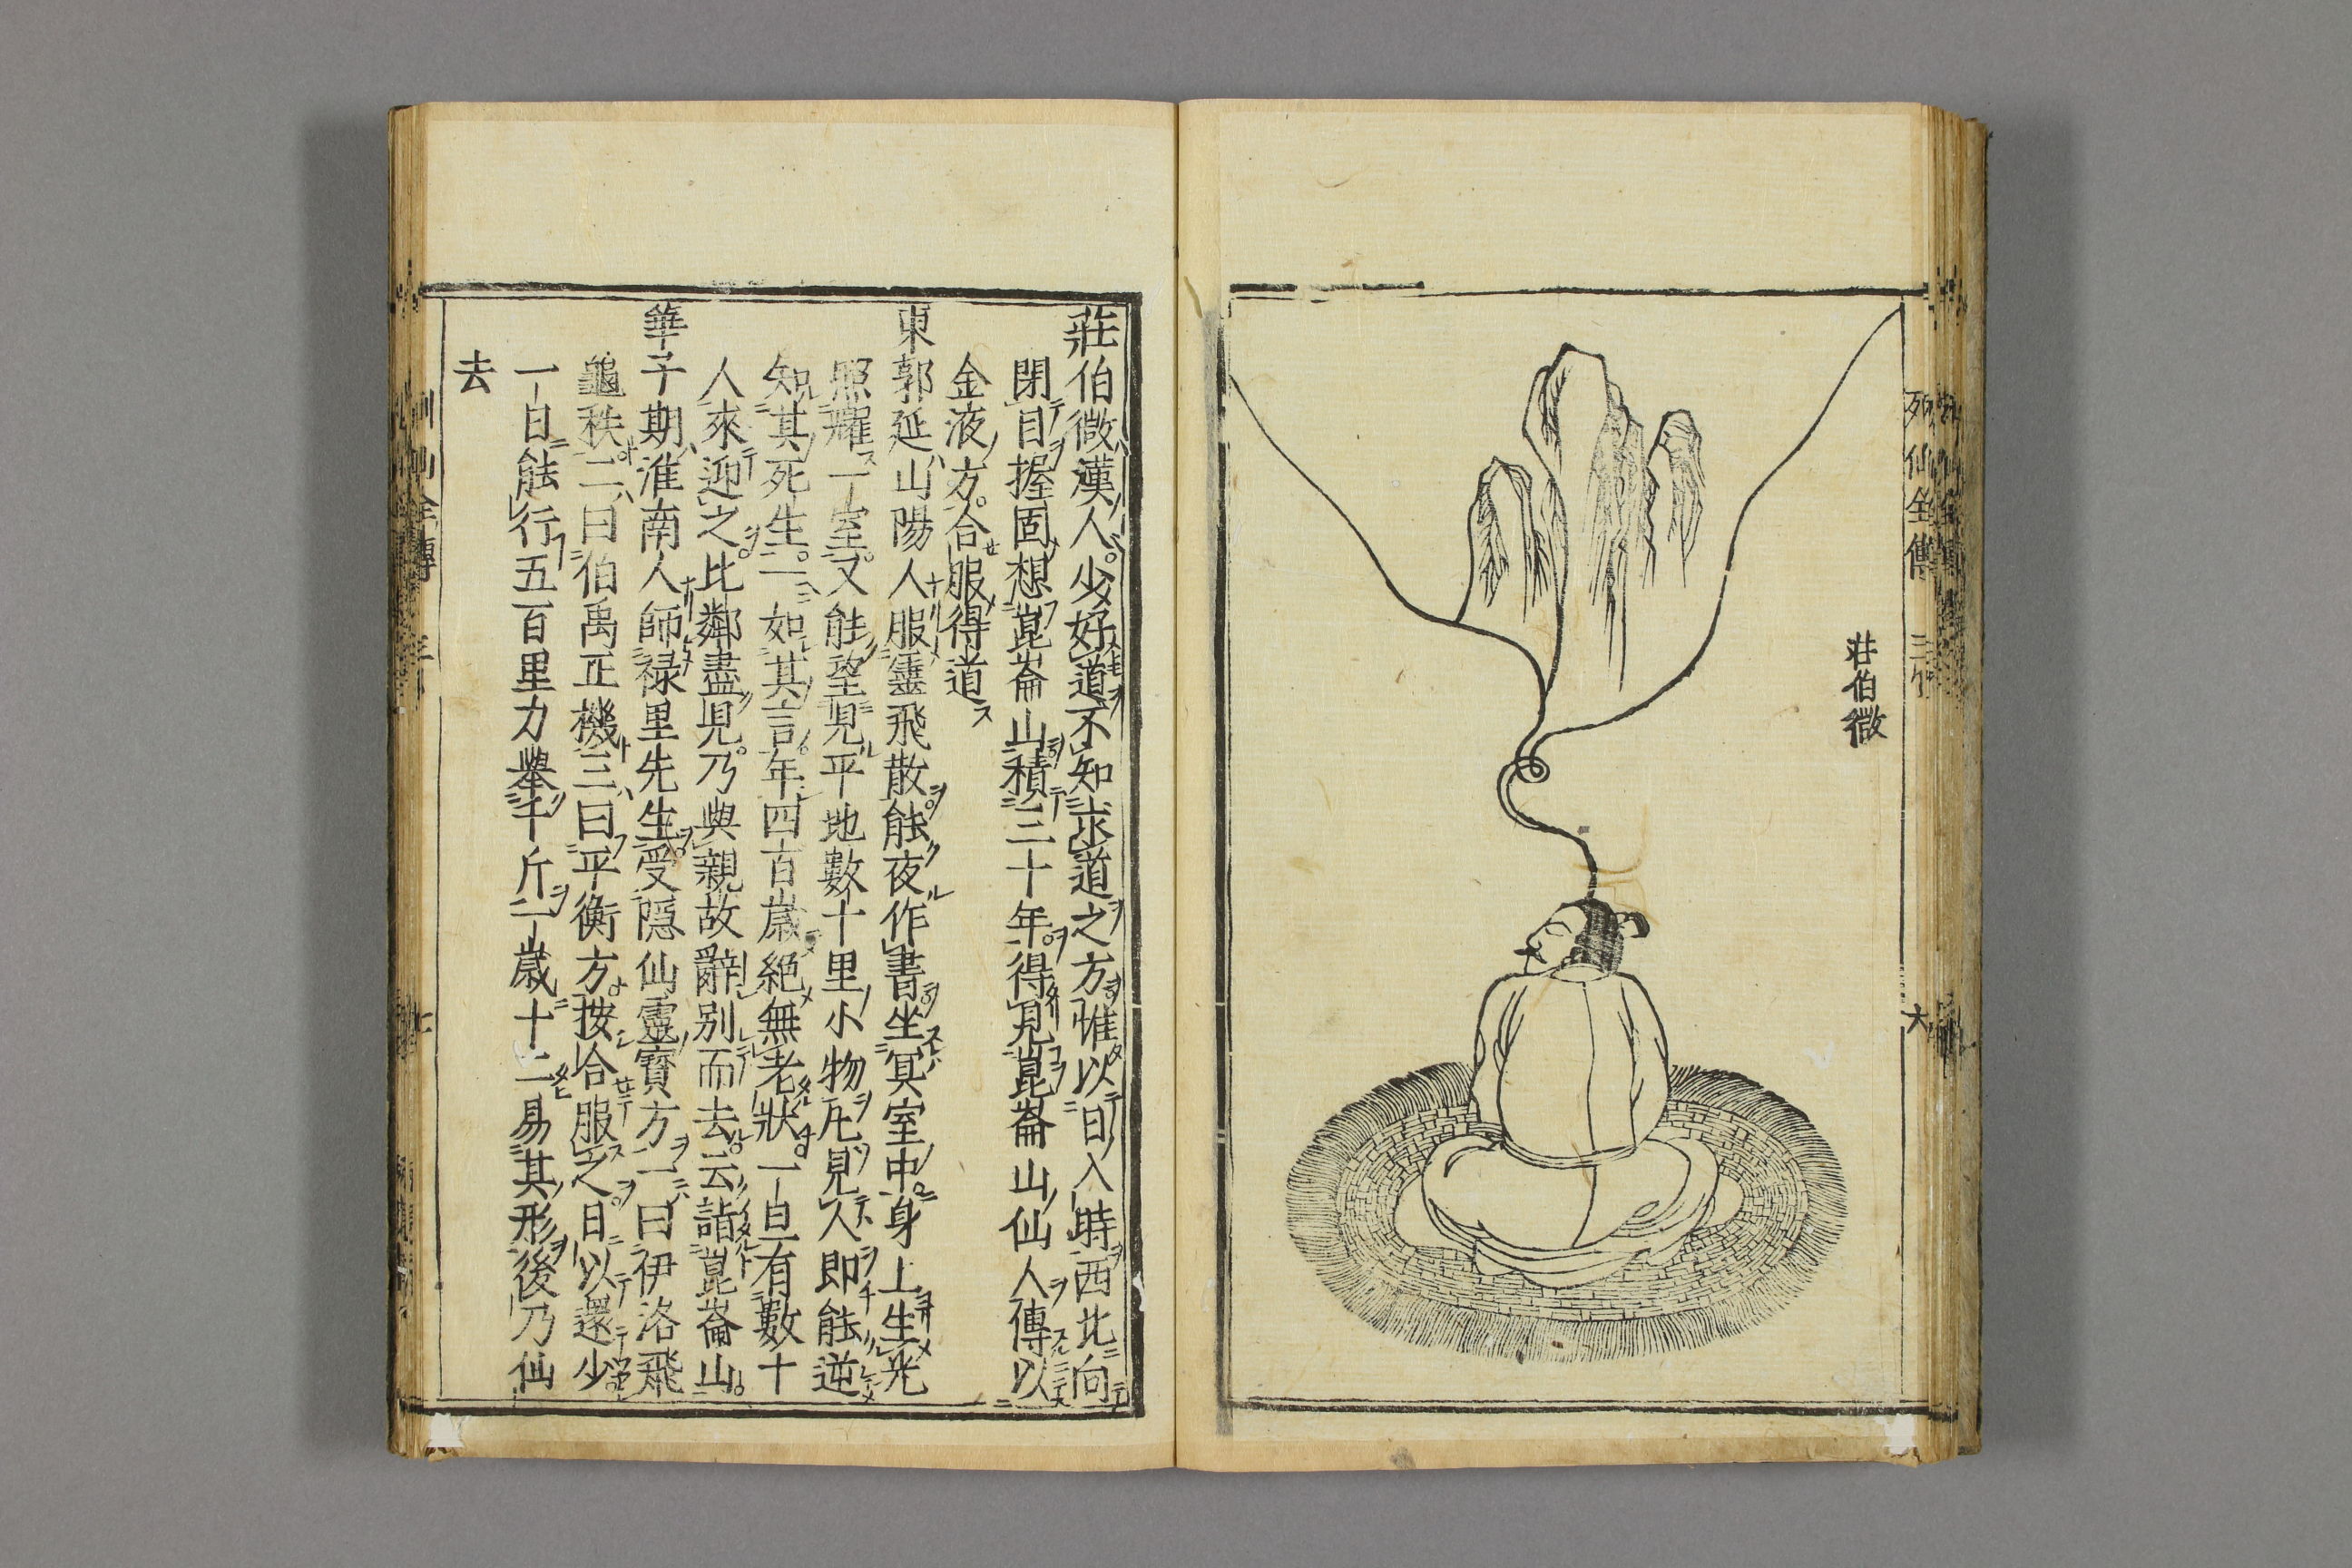 列仙全傳
三
六
莊伯微
莊伯微漢人。少好道不知求道之方惟以日入時西北向
閉目握固想崑崙山積三十年。得見崑崙山仙人傳以
金液方。合服得道
東郭延山陽人服靈飛散能夜作書坐冥室中身上生光
照耀一室。又能望見平地數十里小物凡見人即能逆
知其死生。一如其言。年四百歲絕無老狀。一旦有數十
人來迎之。比鄰盡見。乃與親故辭別而去。云詣崑崙山。
華子期淮南人師祿里先生。受隱仙靈寶方一曰伊洛飛
龜秩二曰伯禹正機三曰平衡方。按合服之。日以還少
一日能行五百里力舉千斤一歲十二易其形後乃仙
去
列仙全傳
七